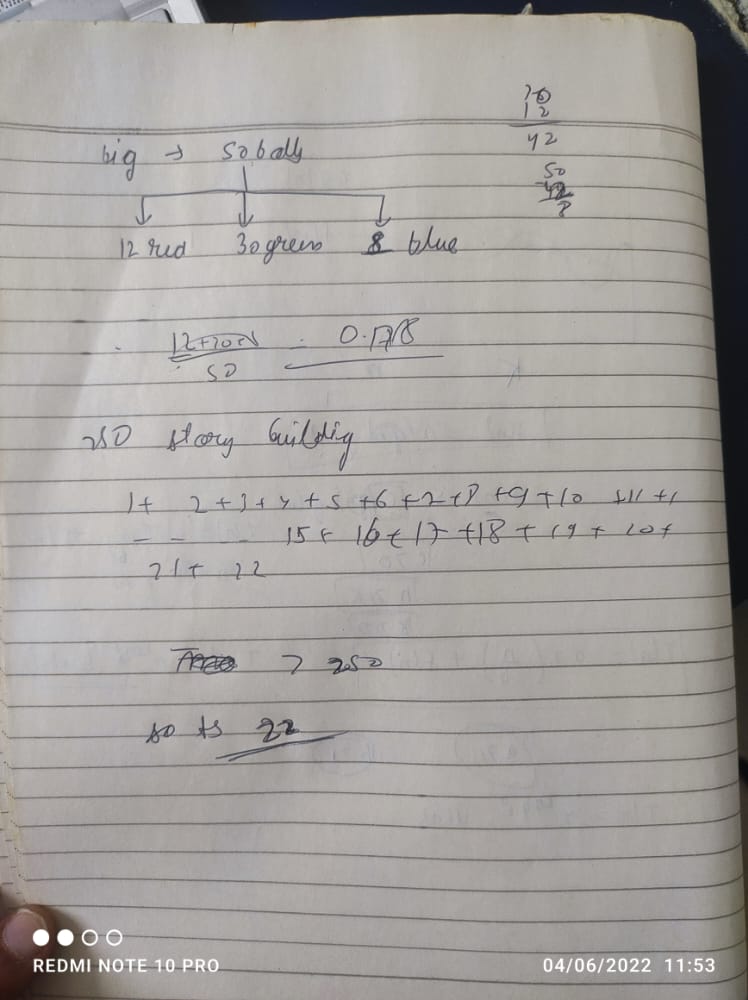 30
12
42
50
42
8
big → 50 balls
12 red 30 green 8 blue
50
0.178
250 story building
1+ 2+3+4+5+6+7+8+9+10 +11+1
- - - - 15+ 16+17+18+19+20+
21+ 22
> 250
so ts 22
REDMI NOTE 10 PRO
04/06/2022 11:53